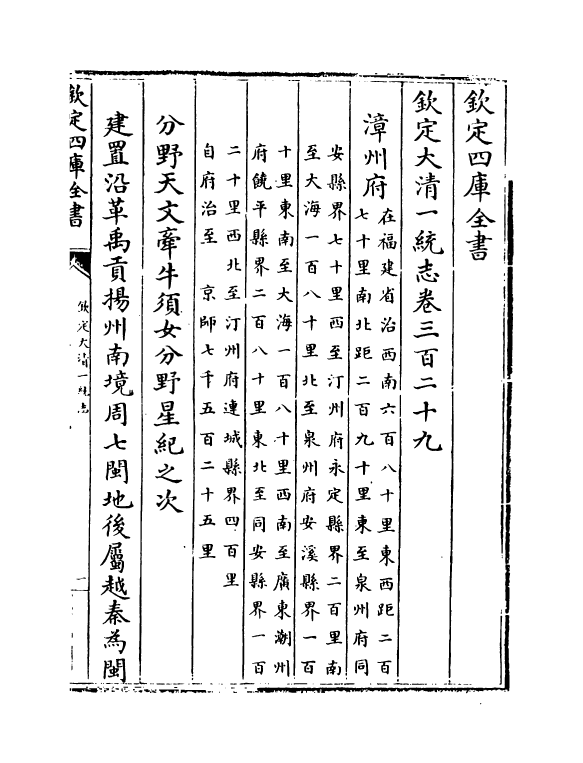 欽定四庫全書
欽定大清一統志卷三百二十九
漳州府
在福建省治西南六百八十里東西距二百
七十里南北距二百九十里東至泉州府同
安縣界七十里西至汀州府永定縣界二百里南
至大海一百八十里北至泉州府安溪縣界一百
十里東南至大海一百八十里西南至廣東潮州
府饒平縣界二百八十里東北至同安縣界一百
二十里西北至汀州府連城縣界四百里
自府治至 京師七千五百二十五里
分野天文牽牛須女分野星紀之次
建置沿革禹貢揚州南境周七閩地後屬越秦為閩
欽定四庫全書
欽定大清一統志